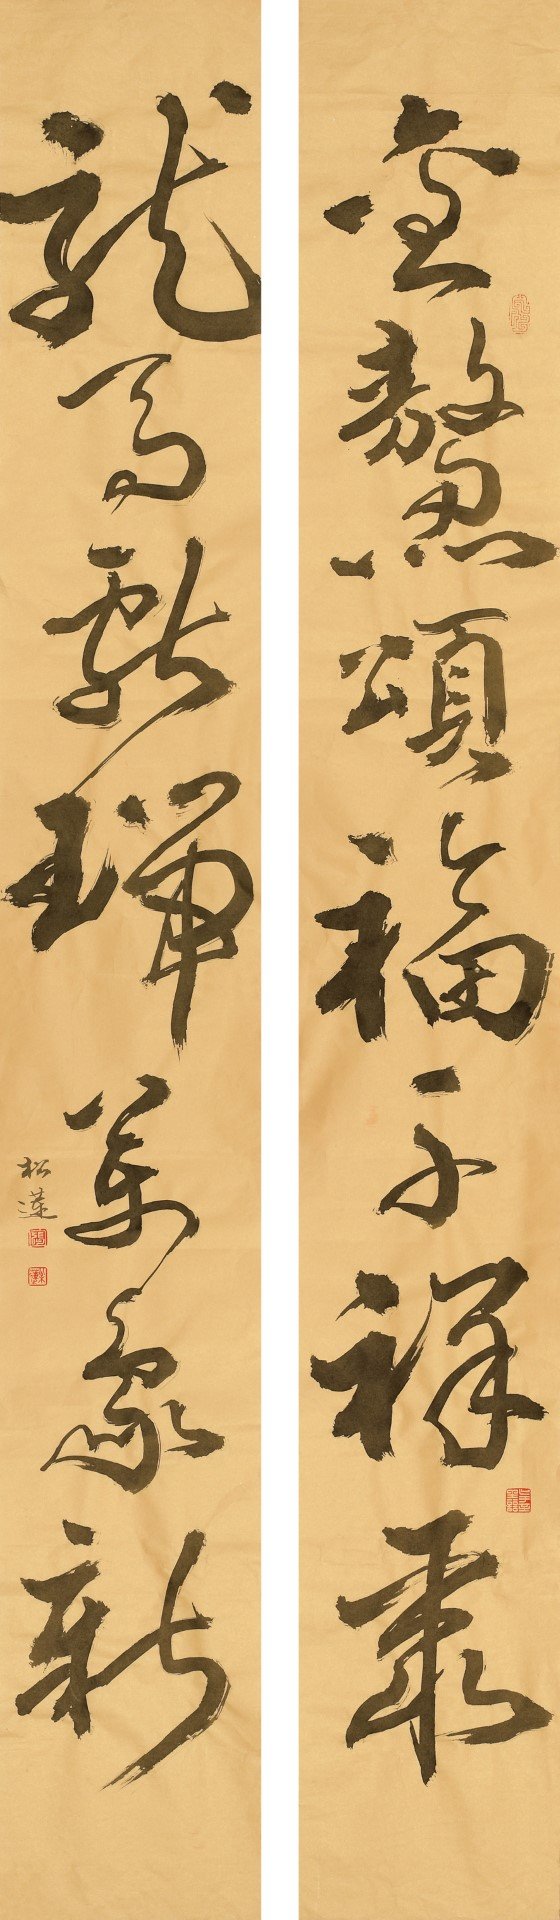 金鰲頌福千祥聚
龍馬獻瑞萬象新
松蓮